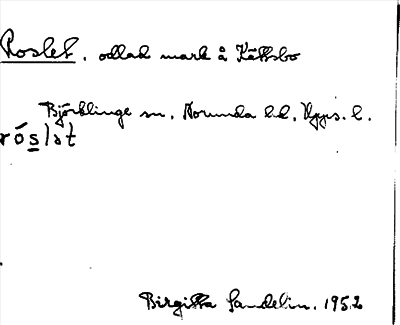 Roslet, odlad mark å Kättsbo
Björklinge sn, Norunda hd, Upps. l.
róslət
Birgitta Sandelin. 1952